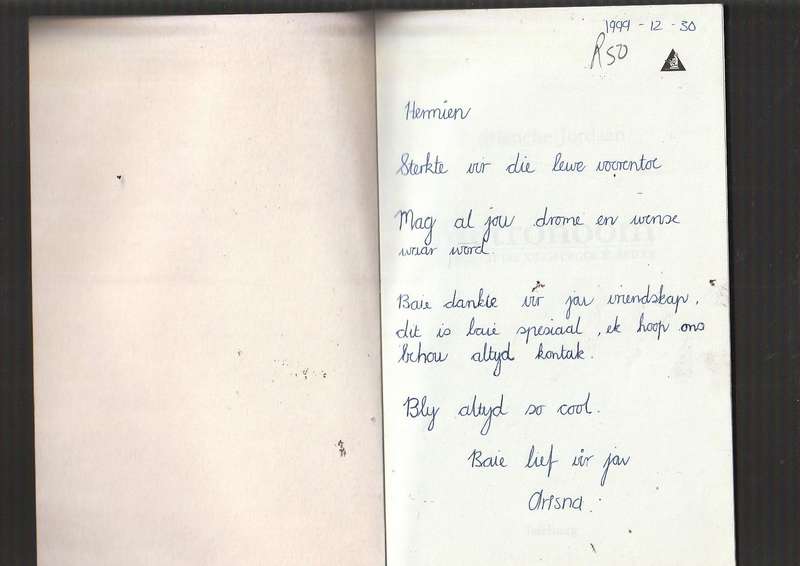 1999-12-30
R50
Hermien
Sterkte vir die lewe vorentoe
Mag al jou drome en wense
waar word
Baie dankie vir jou vriendskap,
dit is baie spesiaal, ek hoop ons
behou altyd kontak.
Bly altyd so cool.
Baie lief vir jou
Arisna.